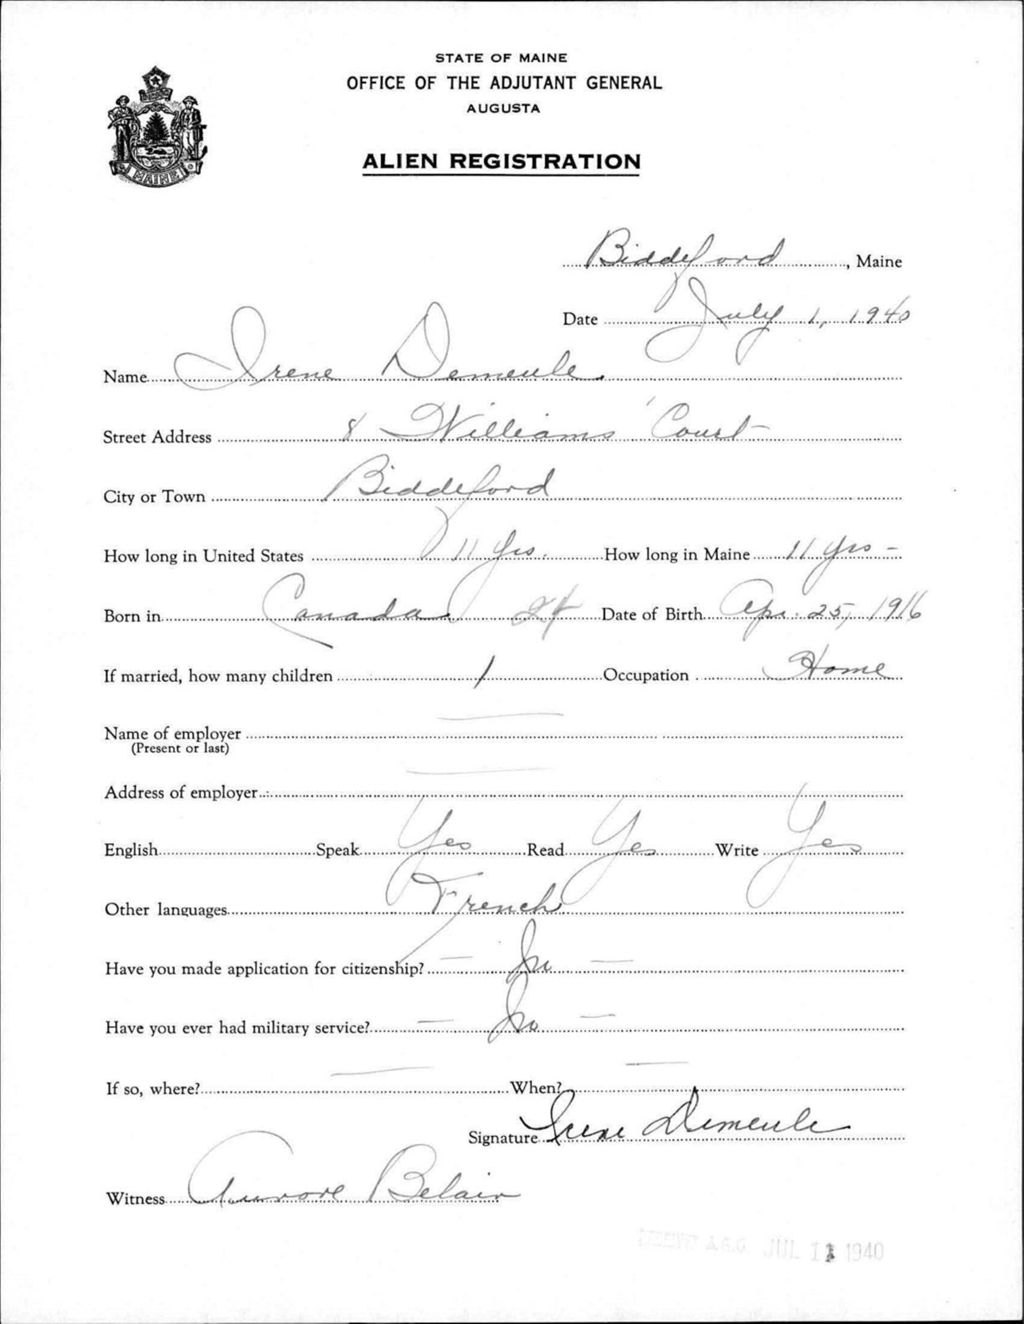 STATE OF MAINE
OFFICE OF THE ADJUTANT GENERAL
AUGUSTA
MAINE
ALIEN REGISTRATION
Biddeford, Maine
Date July 1, 1940
Name Irene Demeule
Street Address 8 Williams Court
City or Town Biddeford
How long in United States 11 yrs. How long in Maine 11 yrs -
Born in Canada 24 Date of Birth Apr. 25, 1916
If married, how many children 1 Occupation Home
Name of employer
(Present or last)
Address of employer
English Speak Yes Read Yes Write Yes
Other languages French
Have you made application for citizenship? - No -
Have you ever had military service? - No -
If so, where? - When? -
Signature Irene Demeule
Witness Aurore Belair
A.G.O. JUL 11 1940